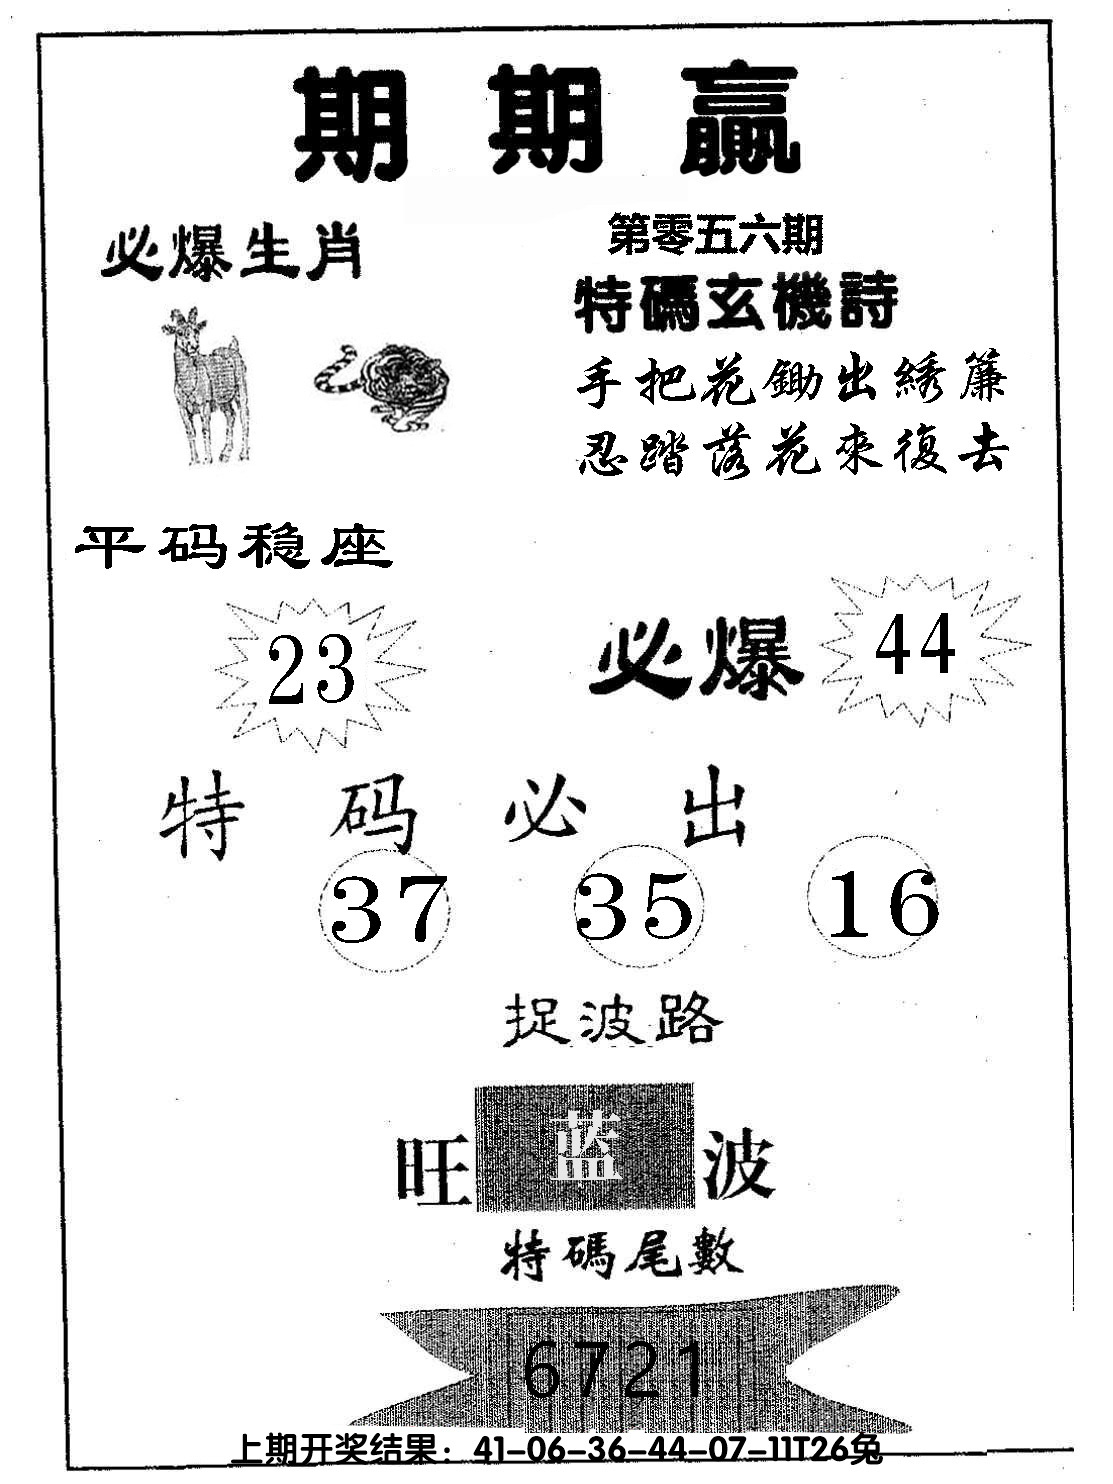 期期赢
必爆生肖
第零五六期
特碼玄機詩
手把花鋤出綉簾
忍踏落花來復去
平码稳座
23
必爆 44
特码必出
37 35 16
捉波路
旺 蓝 波
特碼尾數
6721
上期开奖结果：41-06-36-44-07-11T26兔